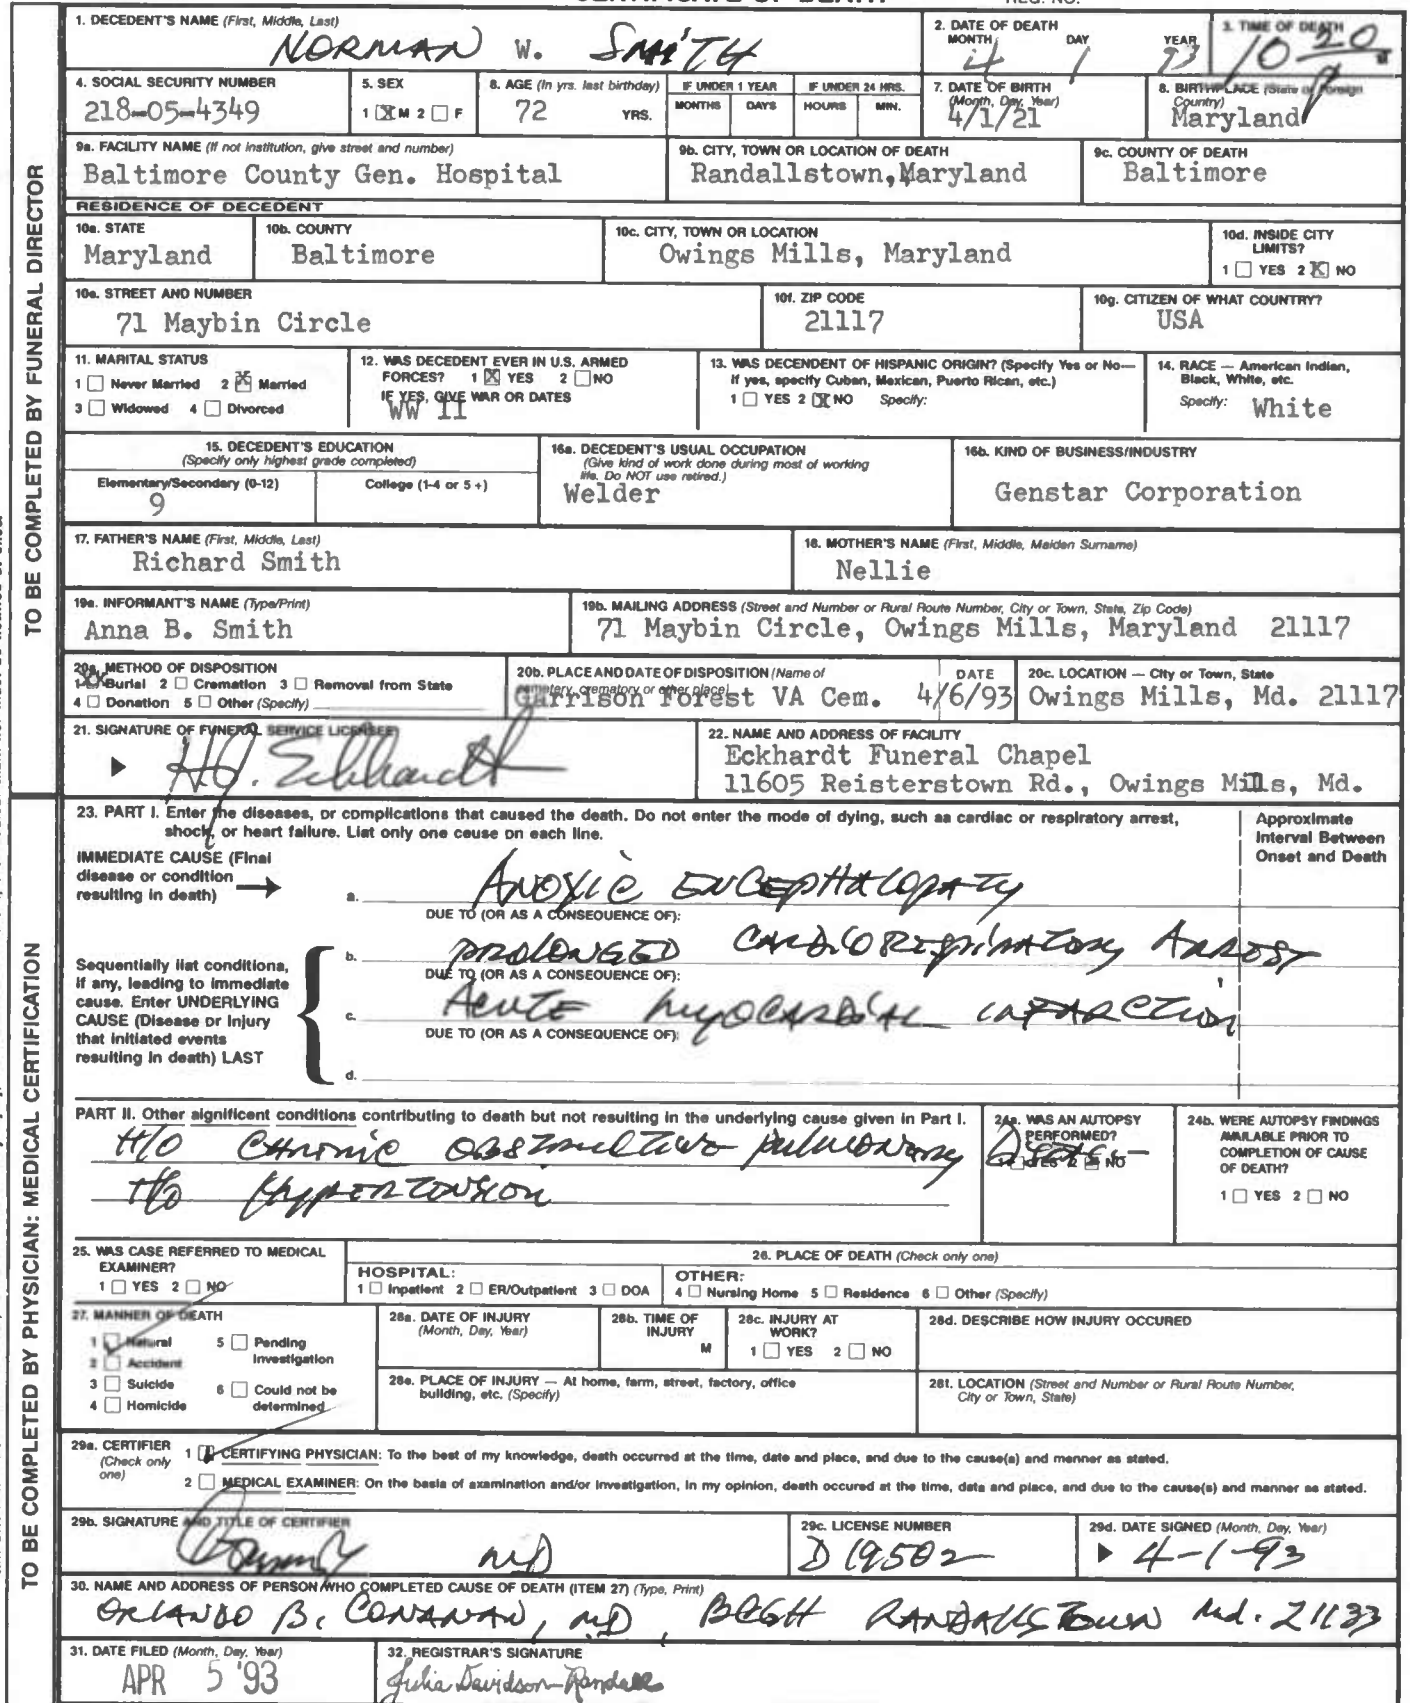 CERTIFICATE OF DEATH REG. NO.
1. DECEDENT'S NAME (First, Middle, Last)
NORMAN W. SMITH
2. DATE OF DEATH
MONTH DAY YEAR
4 1 93
3. TIME OF DEATH
10 20 P M
4. SOCIAL SECURITY NUMBER
218-05-4349
5. SEX
1 X M 2 F
6. AGE (In yrs. last birthday)
72 YRS.
IF UNDER 1 YEAR
MONTHS DAYS
IF UNDER 24 HRS.
HOURS MIN.
7. DATE OF BIRTH
(Month, Day, Year)
4/1/21
8. BIRTHPLACE (State or Foreign
Country)
Maryland
9a. FACILITY NAME (If not institution, give street and number)
Baltimore County Gen. Hospital
9b. CITY, TOWN OR LOCATION OF DEATH
Randallstown, Maryland
9c. COUNTY OF DEATH
Baltimore
RESIDENCE OF DECEDENT
10a. STATE
Maryland
10b. COUNTY
Baltimore
10c. CITY, TOWN OR LOCATION
Owings Mills, Maryland
10d. INSIDE CITY
LIMITS?
1 YES 2 X NO
10e. STREET AND NUMBER
71 Maybin Circle
10f. ZIP CODE
21117
10g. CITIZEN OF WHAT COUNTRY?
USA
11. MARITAL STATUS
1 Never Married 2 X Married
3 Widowed 4 Divorced
12. WAS DECEDENT EVER IN U.S. ARMED
FORCES? 1 X YES 2 NO
IF YES, GIVE WAR OR DATES
WW II
13. WAS DECENDENT OF HISPANIC ORIGIN? (Specify Yes or No—
If yes, specify Cuban, Mexican, Puerto Rican, etc.)
1 YES 2 X NO Specify:
14. RACE — American Indian,
Black, White, etc.
Specify: White
15. DECEDENT'S EDUCATION
(Specify only highest grade completed)
Elementary/Secondary (0-12) College (1-4 or 5+)
9
16a. DECEDENT'S USUAL OCCUPATION
(Give kind of work done during most of working
life. Do NOT use retired.)
Welder
16b. KIND OF BUSINESS/INDUSTRY
Genstar Corporation
17. FATHER'S NAME (First, Middle, Last)
Richard Smith
18. MOTHER'S NAME (First, Middle, Maiden Surname)
Nellie
19a. INFORMANT'S NAME (Type/Print)
Anna B. Smith
19b. MAILING ADDRESS (Street and Number or Rural Route Number, City or Town, State, Zip Code)
71 Maybin Circle, Owings Mills, Maryland 21117
20a. METHOD OF DISPOSITION
1 XX Burial 2 Cremation 3 Removal from State
4 Donation 5 Other (Specify)
20b. PLACE AND DATE OF DISPOSITION (Name of
cemetery, crematory or other place)
Garrison Forest VA Cem.
DATE
4/6/93
20c. LOCATION — City or Town, State
Owings Mills, Md. 21117
21. SIGNATURE OF FUNERAL SERVICE LICENSEE
H.J. Eckhardt
22. NAME AND ADDRESS OF FACILITY
Eckhardt Funeral Chapel
11605 Reisterstown Rd., Owings Mills, Md.
TO BE COMPLETED BY FUNERAL DIRECTOR
23. PART I. Enter the diseases, or complications that caused the death. Do not enter the mode of dying, such as cardiac or respiratory arrest,
shock, or heart failure. List only one cause on each line.
Approximate
Interval Between
Onset and Death
IMMEDIATE CAUSE (Final
disease or condition
resulting in death)
a. ANOXIC ENCEPHALOPATY
DUE TO (OR AS A CONSEQUENCE OF):
b. PROLONGED CARDIORESPIRATORY ARREST
DUE TO (OR AS A CONSEQUENCE OF):
c. ACUTE MYOCARDIAL INFARCTION
DUE TO (OR AS A CONSEQUENCE OF):
d.
Sequentially list conditions,
if any, leading to immediate
cause. Enter UNDERLYING
CAUSE (Disease or Injury
that initiated events
resulting in death) LAST
PART II. Other significent conditions contributing to death but not resulting in the underlying cause given in Part I.
H/O Chronic obstructive pulmonary Disease
H/O Hypertension
24a. WAS AN AUTOPSY
PERFORMED?
1 YES 2 NO
24b. WERE AUTOPSY FINDINGS
AVAILABLE PRIOR TO
COMPLETION OF CAUSE
OF DEATH?
1 YES 2 NO
25. WAS CASE REFERRED TO MEDICAL
EXAMINER?
1 YES 2 NO
26. PLACE OF DEATH (Check only one)
HOSPITAL:
1 Inpatient 2 ER/Outpatient 3 DOA
OTHER:
4 Nursing Home 5 Residence 6 Other (Specify)
27. MANNER OF DEATH
1 Natural 5 Pending
Investigation
2 Accident
3 Suicide 6 Could not be
determined
4 Homicide
28a. DATE OF INJURY
(Month, Day, Year)
28b. TIME OF
INJURY
M
28c. INJURY AT
WORK?
1 YES 2 NO
28d. DESCRIBE HOW INJURY OCCURED
28e. PLACE OF INJURY — At home, farm, street, factory, office
building, etc. (Specify)
28f. LOCATION (Street and Number or Rural Route Number,
City or Town, State)
29a. CERTIFIER
(Check only
one)
1 CERTIFYING PHYSICIAN: To the best of my knowledge, death occurred at the time, date and place, and due to the cause(s) and manner as stated.
2 MEDICAL EXAMINER: On the basis of examination and/or investigation, in my opinion, death occured at the time, date and place, and due to the cause(s) and manner as stated.
29b. SIGNATURE AND TITLE OF CERTIFIER
MD
29c. LICENSE NUMBER
D19502
29d. DATE SIGNED (Month, Day, Year)
4-1-93
30. NAME AND ADDRESS OF PERSON WHO COMPLETED CAUSE OF DEATH (ITEM 27) (Type, Print)
ORLANDO B. CONANAN, MD, BCGH RANDALLSTOWN Md. 21133
31. DATE FILED (Month, Day, Year)
APR 5 '93
32. REGISTRAR'S SIGNATURE
Julia Davidson-Randall
TO BE COMPLETED BY PHYSICIAN: MEDICAL CERTIFICATION